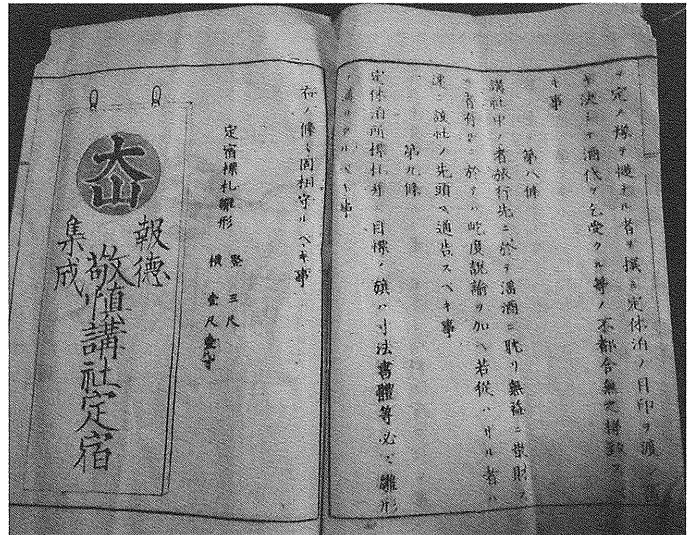 定メ様ヲ慥ナル者ヲ撰ミ定休泊ノ目印ヲ渡
決シテ酒代ヲ乞受クル等ノ不都合無之様致ス
キ事
第八條
講社中ノ者旅行先ニ於テ濫酒ニ耽リ無益ニ費財ヲ
者有之ニ於テハ屹度説諭ヲ加ヘ若従ハサル者ハ
速ニ該社ノ先頭ヘ通告スベキ事
第九條
定休泊所標札并ニ目標ノ旗ハ寸法書體等必ズ雛形
ベキ事
右ノ條々固相守ルベキ事
定宿標札雛形
竪三尺
横壹尺壹寸
大山
報徳
集成
敬慎講社定宿